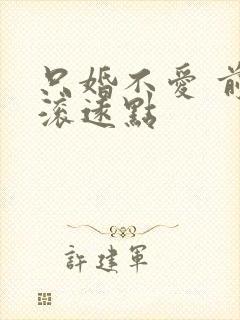 只婚不愛 前
滾遠點
許建軍